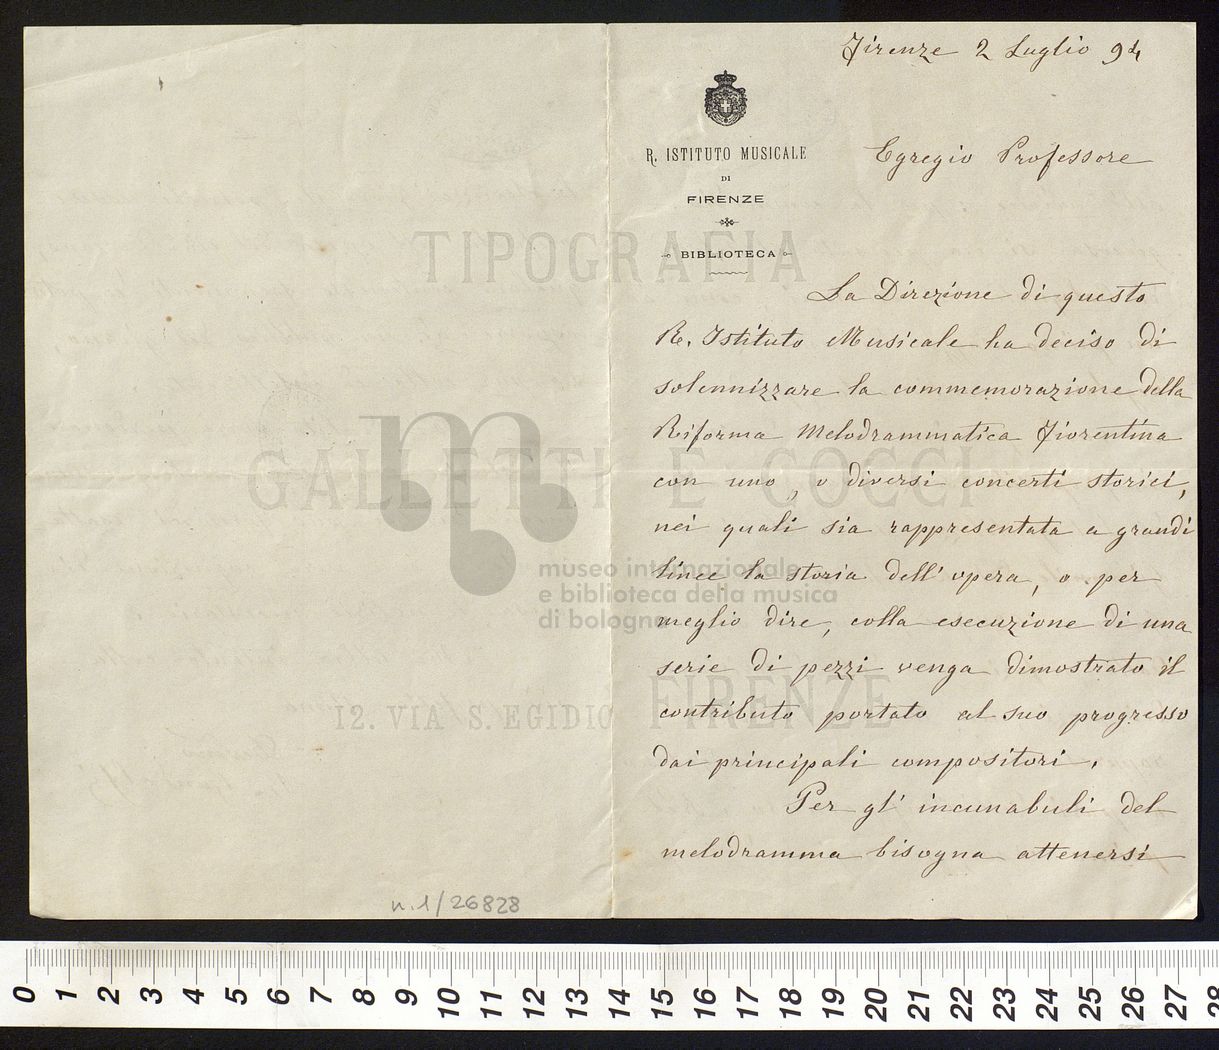 Firenze 2 Luglio 94
R. ISTITUTO MUSICALE
DI
FIRENZE
BIBLIOTECA
Egregio Professore
La Direzione di questo
R. Istituto Musicale ha deciso di
solennizzare la commemorazione della
Riforma Melodrammatica Fiorentina
con uno, o diversi concerti storici,
nei quali sia rappresentata a grandi
linee la storia dell'opera, o per
meglio dire, colla esecuzione di una
serie di pezzi venga dimostrato il
contributo portato al suo progresso
dai principali compositori.
Per gl'incunabuli del
melodramma bisogna attenersi
TIPOGRAFIA
GALLETTI E COCCI
12. VIA S. EGIDIO FIRENZE
museo internazionale
e biblioteca della musica
di bologna
n.1/26828
0 1 2 3 4 5 6 7 8 9 10 11 12 13 14 15 16 17 18 19 20 21 22 23 24 25 26 27 28